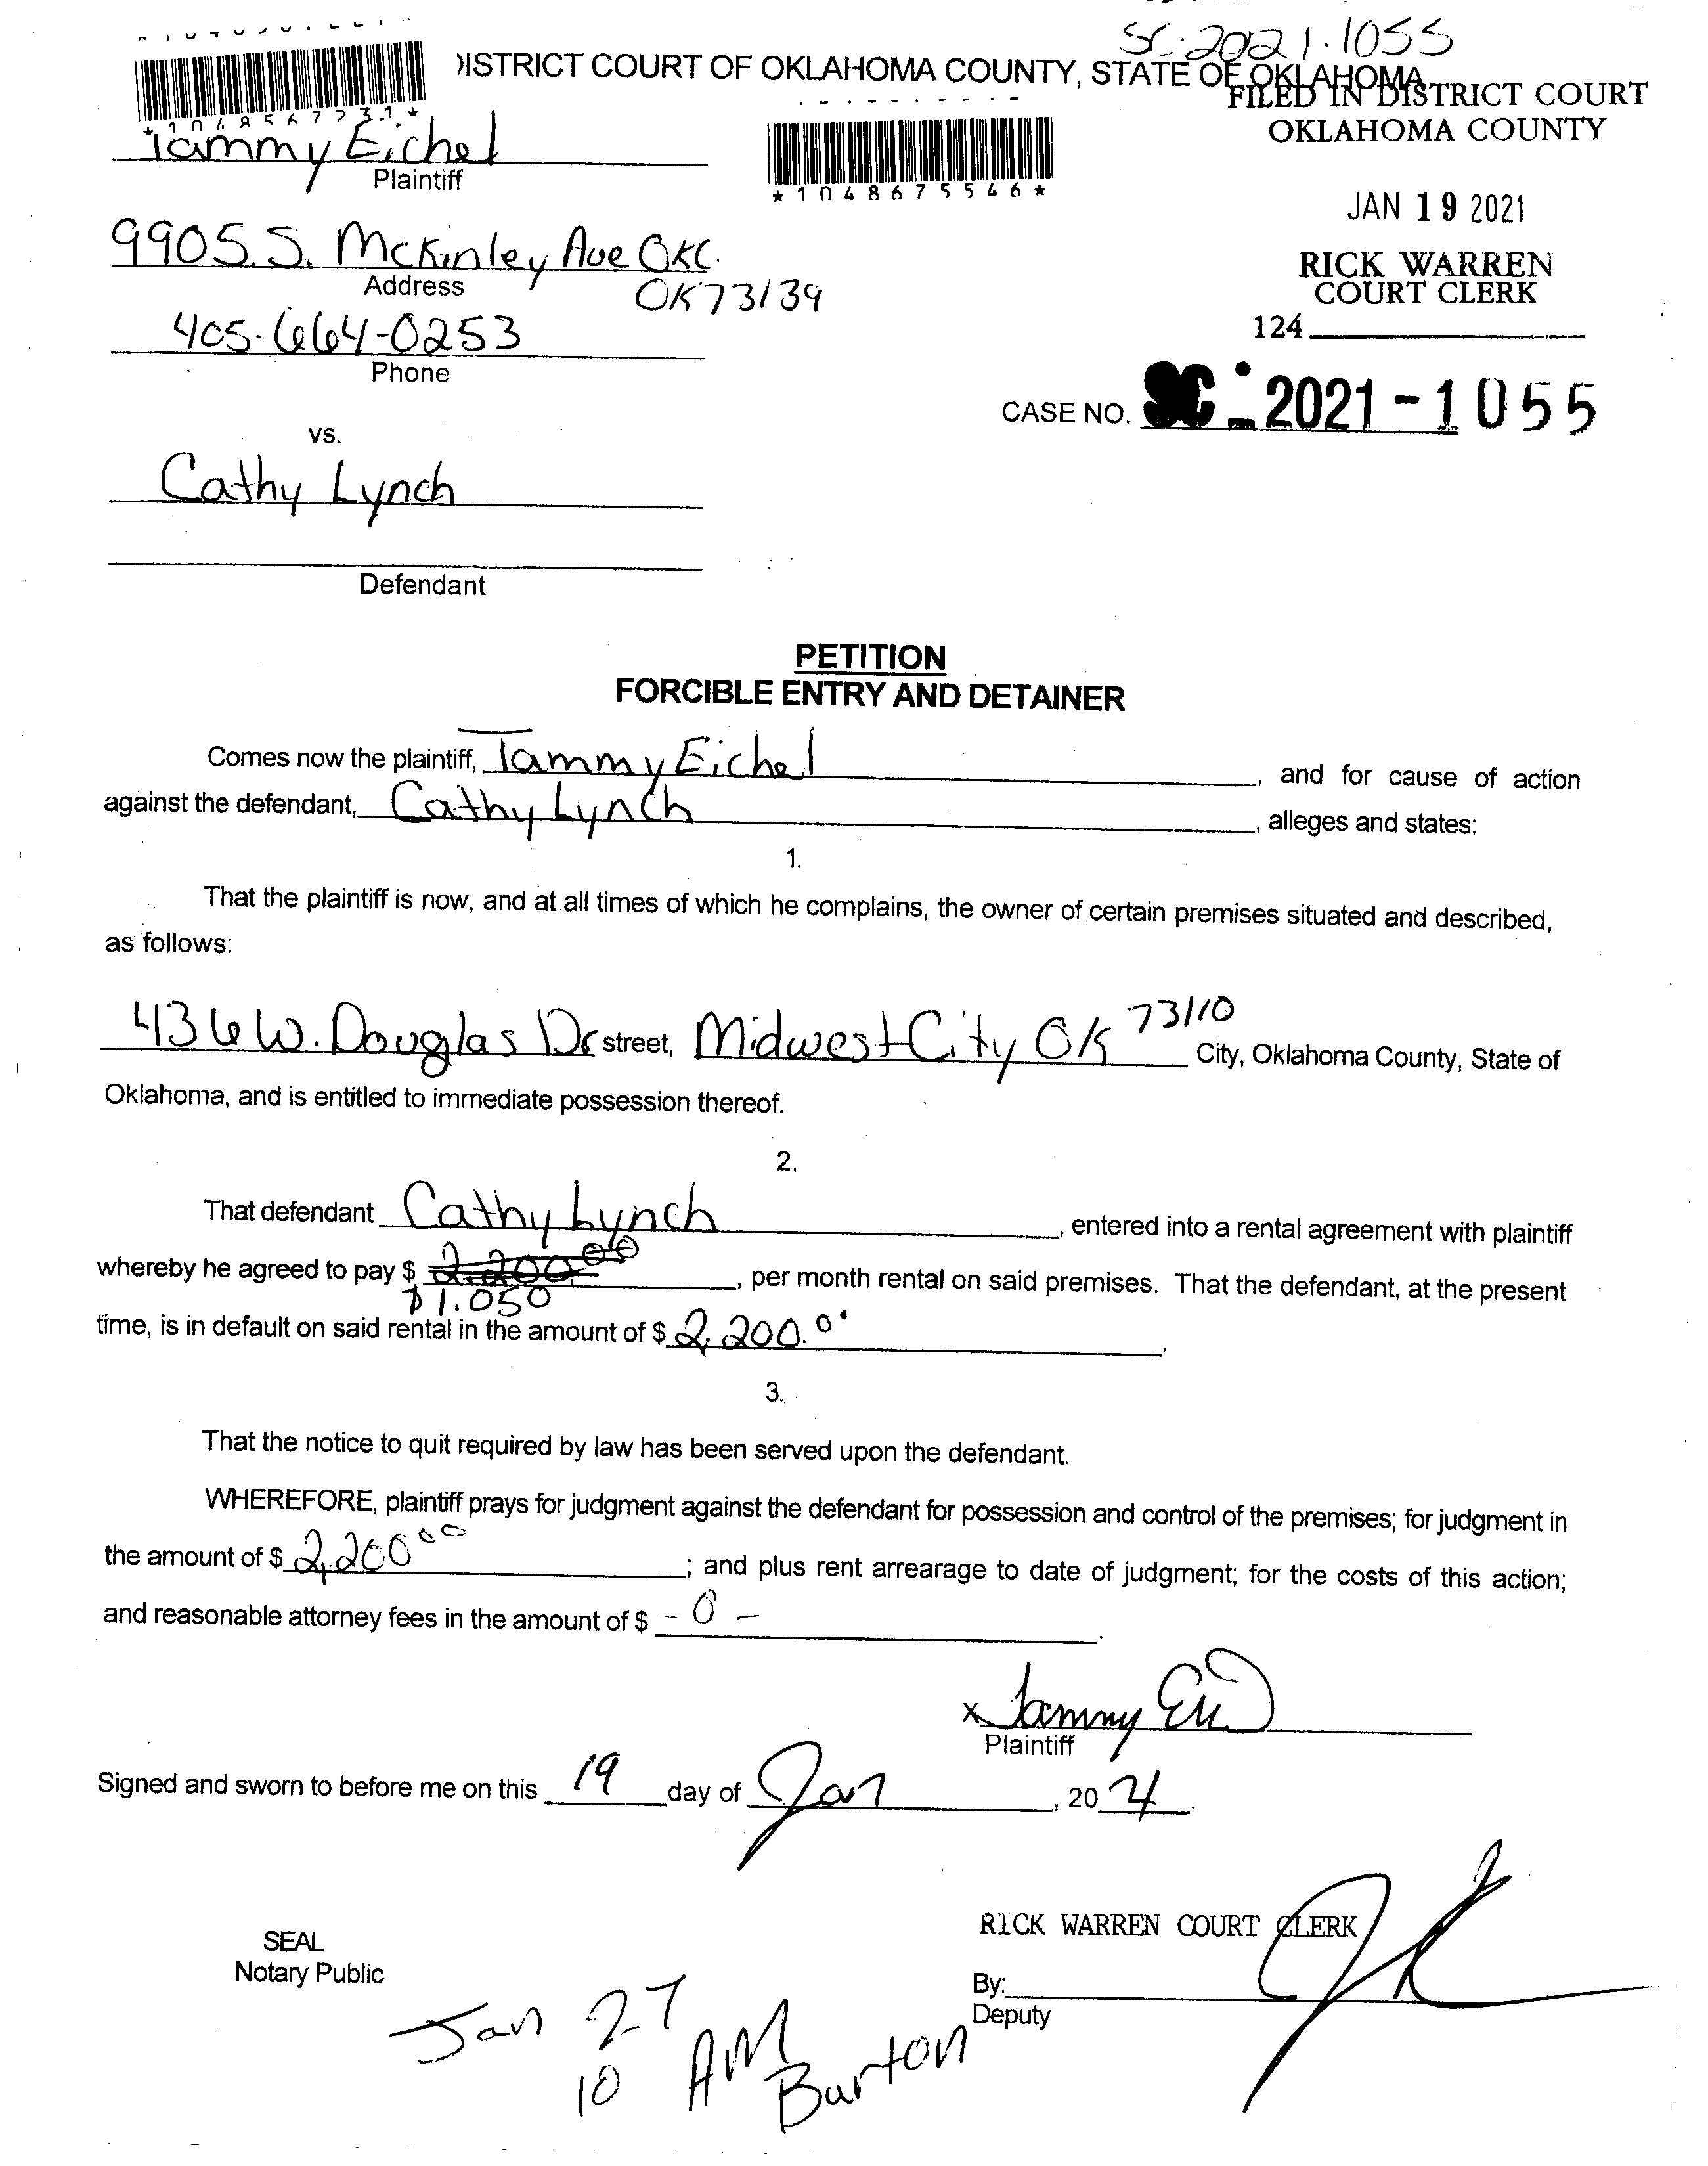 SC-2021-1055
DISTRICT COURT OF OKLAHOMA COUNTY, STATE OF OKLAHOMA
FILED IN DISTRICT COURT
OKLAHOMA COUNTY
*1048567231*
*1048675546*
Tammy Eichel
Plaintiff
JAN 19 2021
9905 S. McKinley Ave OKC.
Address
OK 73139
RICK WARREN
COURT CLERK
405-664-0253
124
Phone
CASE NO. SC-2021-1055
vs.
Cathy Lynch
Defendant
PETITION
FORCIBLE ENTRY AND DETAINER
Comes now the plaintiff, Tammy Eichel, and for cause of action
against the defendant, Cathy Lynch, alleges and states:
1.
That the plaintiff is now, and at all times of which he complains, the owner of certain premises situated and described,
as follows:
436 W. Douglas Dr street, Midwest City OK 73110 City, Oklahoma County, State of
Oklahoma, and is entitled to immediate possession thereof.
2.
That defendant Cathy Lynch, entered into a rental agreement with plaintiff
whereby he agreed to pay $ 2,200.00, per month rental on said premises. That the defendant, at the present
$1.050
time, is in default on said rental in the amount of $ 2,200.00.
3.
That the notice to quit required by law has been served upon the defendant.
WHEREFORE, plaintiff prays for judgment against the defendant for possession and control of the premises; for judgment in
the amount of $ 2,200 00; and plus rent arrearage to date of judgment; for the costs of this action;
and reasonable attorney fees in the amount of $ - 0 -.
x Tammy Eichel
Plaintiff
Signed and sworn to before me on this 19 day of Jan, 2021.
RICK WARREN COURT CLERK
SEAL
Notary Public
By:
Deputy
Jan 27
10 AM
Burton